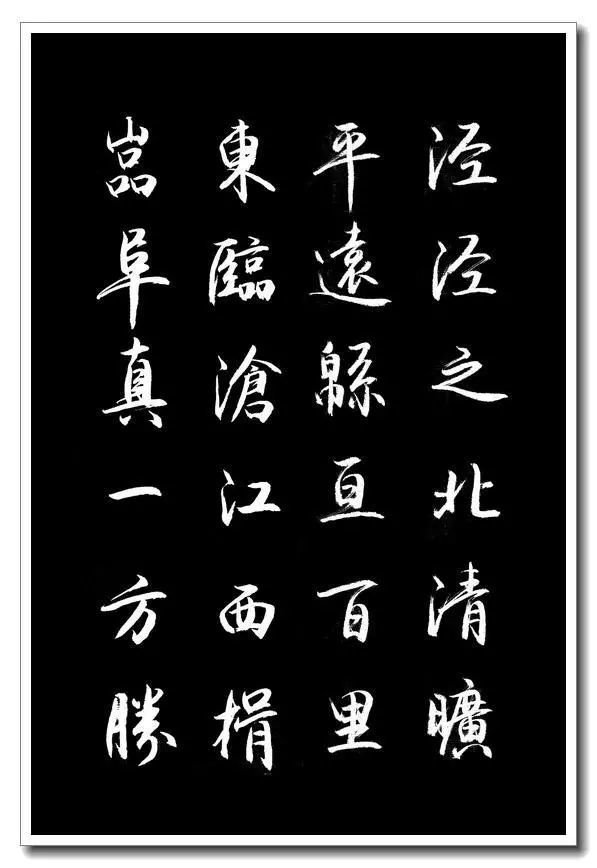 泾泾之北清曠
平遠緜亘百里
東臨滄江西揖
嵓阜真一方勝